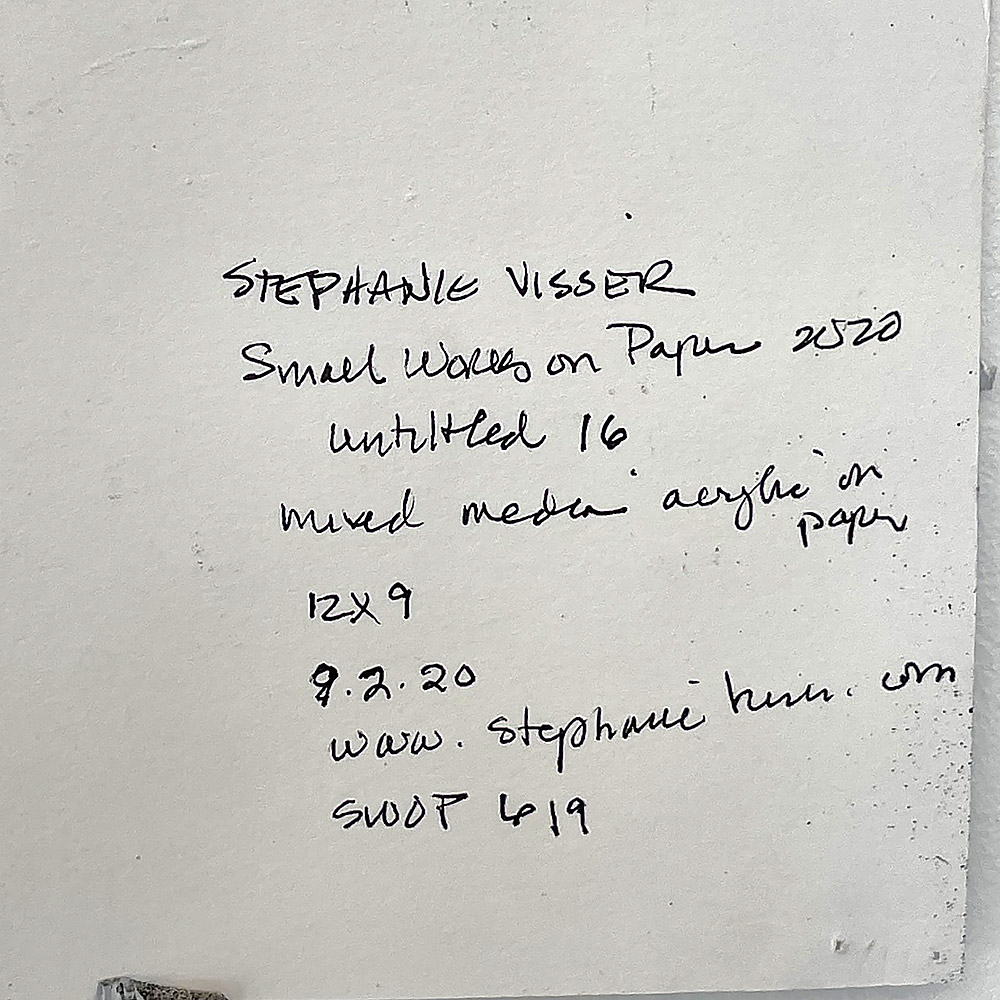 STEPHANIE VISSER
Small Works on Paper 2020
untitled 16
mixed media acrylic on
paper
12x9
9.2.20
www.stephanievisser.com
SWOP 619